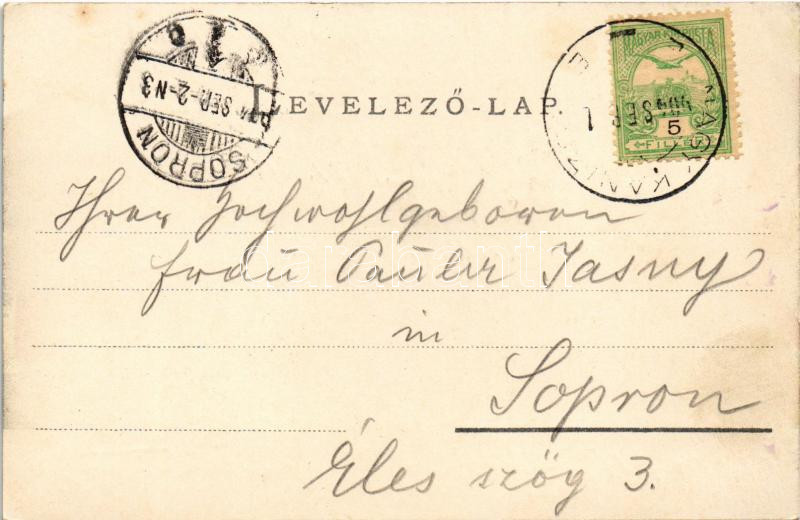 SOPRON
SEP.-2-N3
LEVELEZŐ-LAP.
MAGYAR KIR. POSTA
5
FILLÉR
SEP 1
Ihrer Hochwohlgeboren
Frau Pauler Jasny
in
Sopron
Éles szög 3.